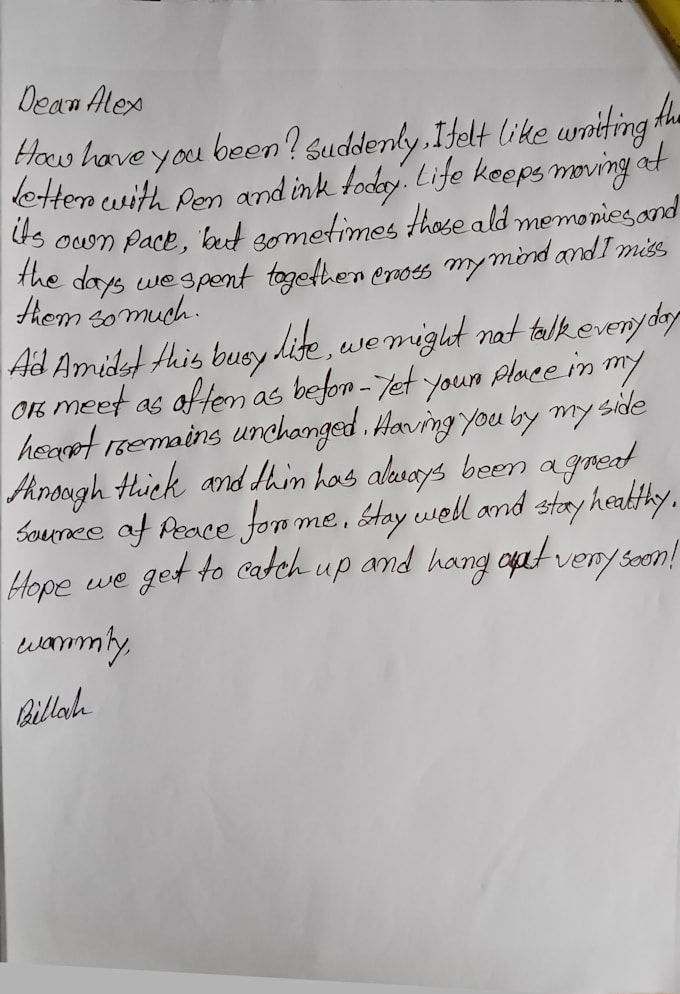 Dear Alex
How have you been? Suddenly, I felt like writing
letter with Pen and ink today. Life keeps moving at
its own pace, but sometimes those old memories and
the days we spent together cross my mind and I miss
them so much.
Amidst this busy life, we might not talk every day
or meet as often as befor - Yet your place in my
heart remains unchanged. Having you by my side
through thick and thin has always been a great
Source of Peace for me. Stay well and stay healthy.
Hope we get to catch up and hang out very soon!
warmly,
Billah